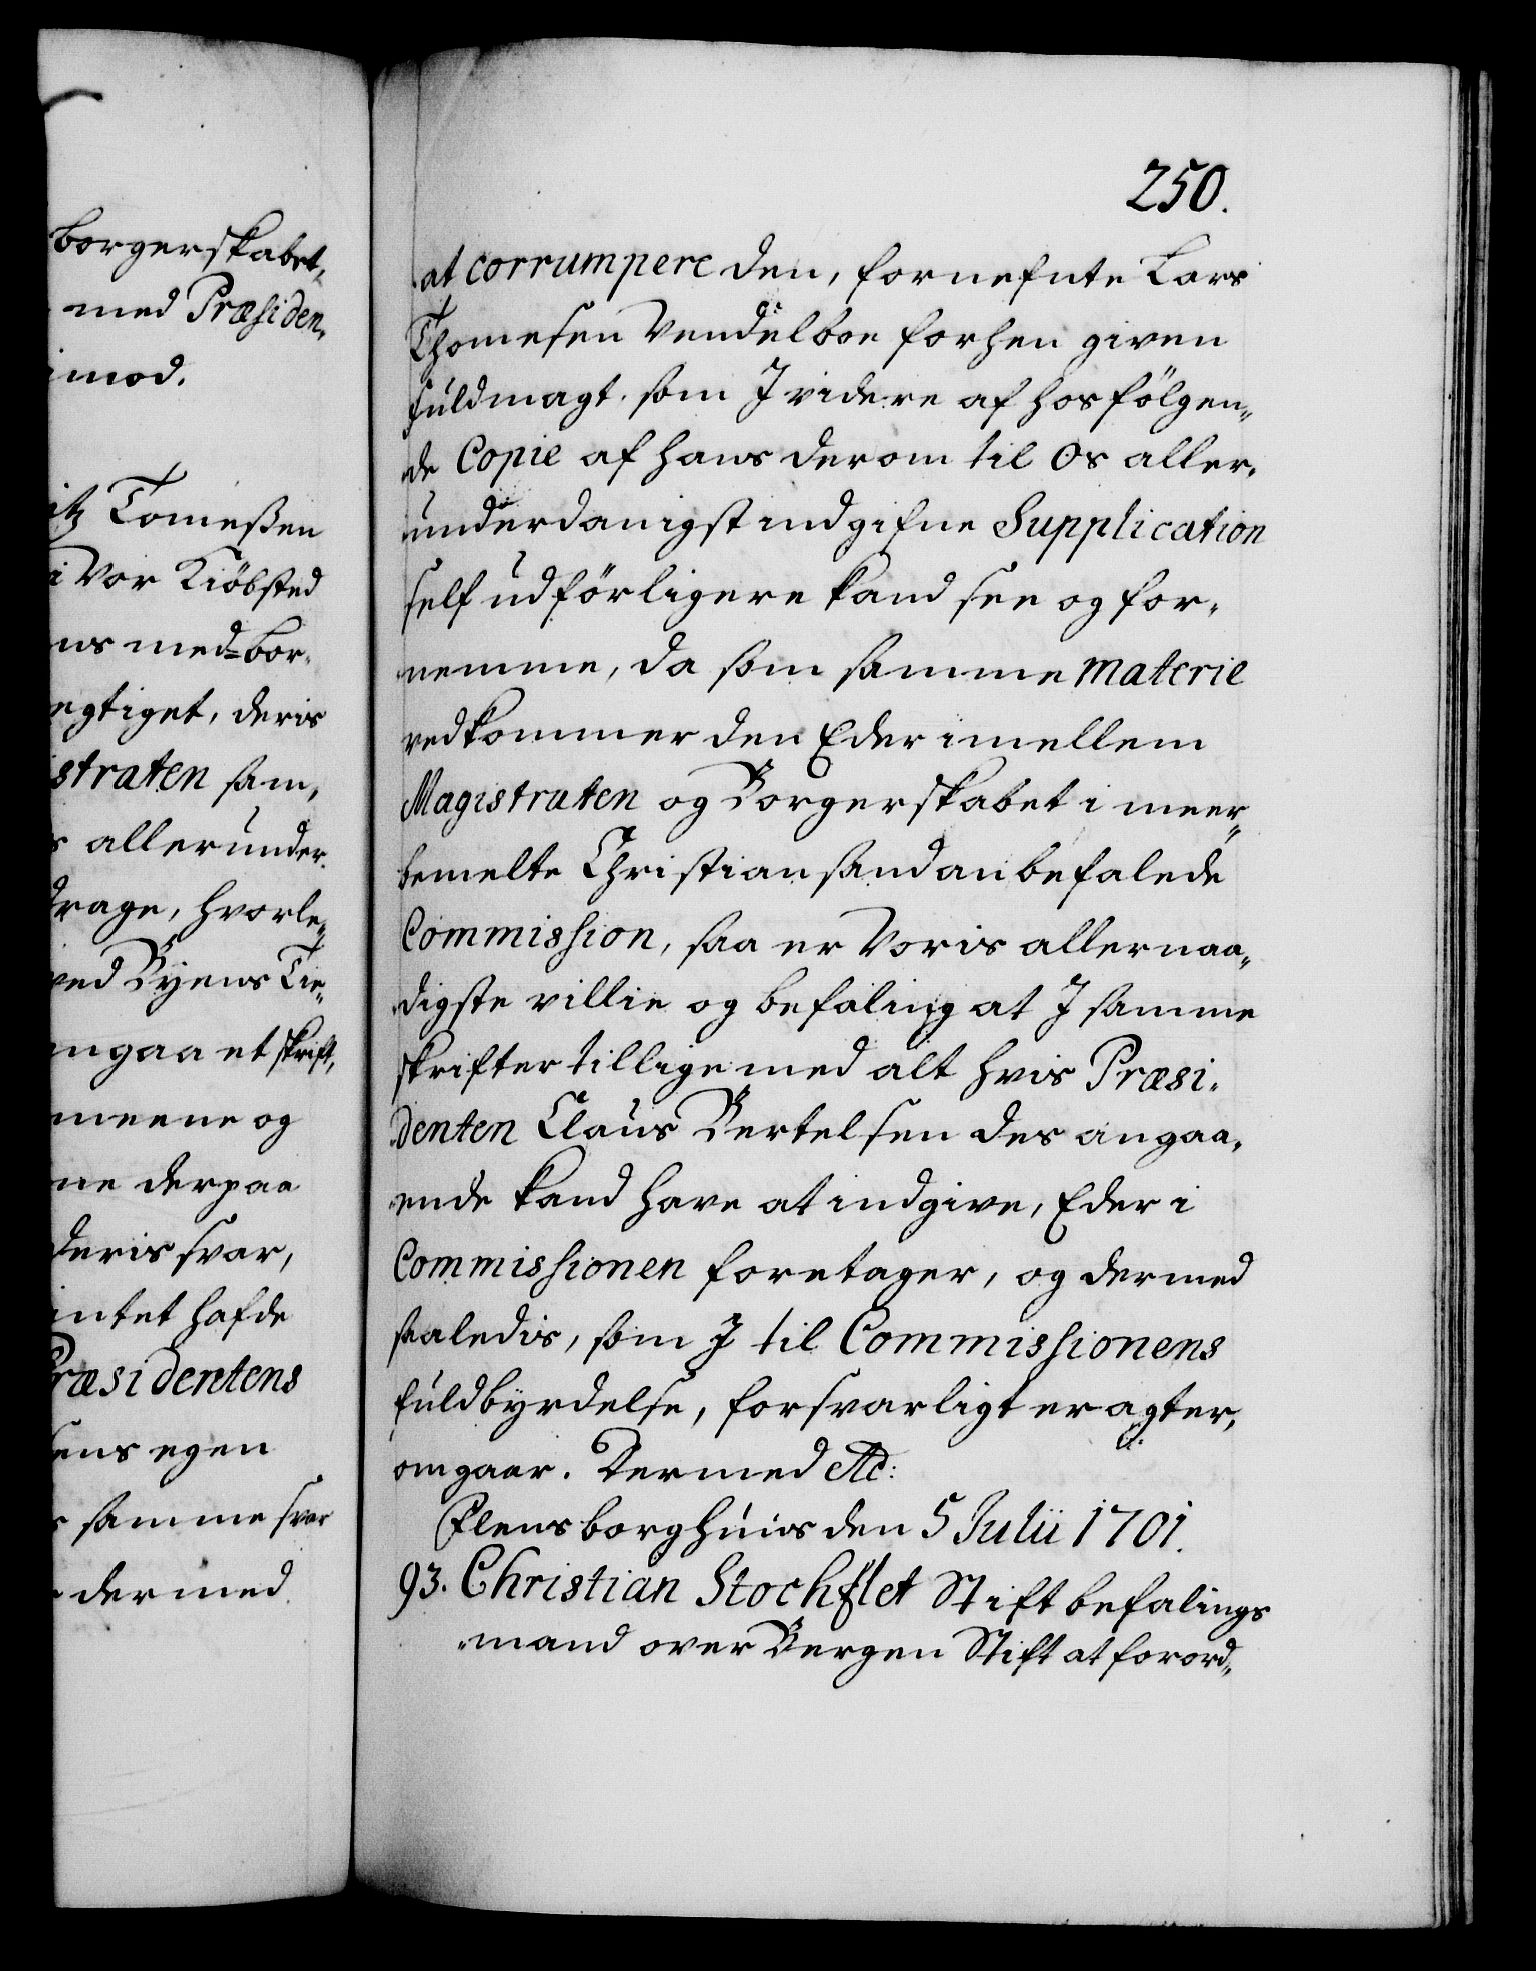 borgerskabet,
med Præsiden,
imod.
itz Tomeßen
i Vor Kiöbsted
ns med=bor,
egtiget, deris
straten sam,
s allerunder
drage, hvorle,
ved Byens Tie,
angaa et skrift,
meene og
ne derpaa
deris svar,
intet hafde
Præsidentens
sens egen
samme svar
dermed
250.
at corrumpere den, fornefnte Lars
Thomesen Vendelboe forhen given
fuldmagt. som I videre af hosfölgen,,
de Copie af hans derom til Os aller,
underdanigst indgifne Supplication
self udförligere kand see og for,
nemme, da som samme materie
vedkommer den Eder imellem
Magistraten og Borgerskabet i meer,,
bemelte Christiansand anbefalede
Commission, saa er Voris allernaa,,
digste villie og befaling at I samme
skrifter tillige med alt hvis Præsi,
denten Claus Bertelsen des angaa,
ende kand have at indgive, Eder i
Commissionen foretager, og dermed
saaledis, som I til Commissionens
fuldbyrdelse, forsvarligt eragter,
omgaar. Dermed etc:
Flensborghuus den 5 Julii 1701.
93. Christian Stochflet Stiftbefalings
,,mand over Bergen Stift at forord,,